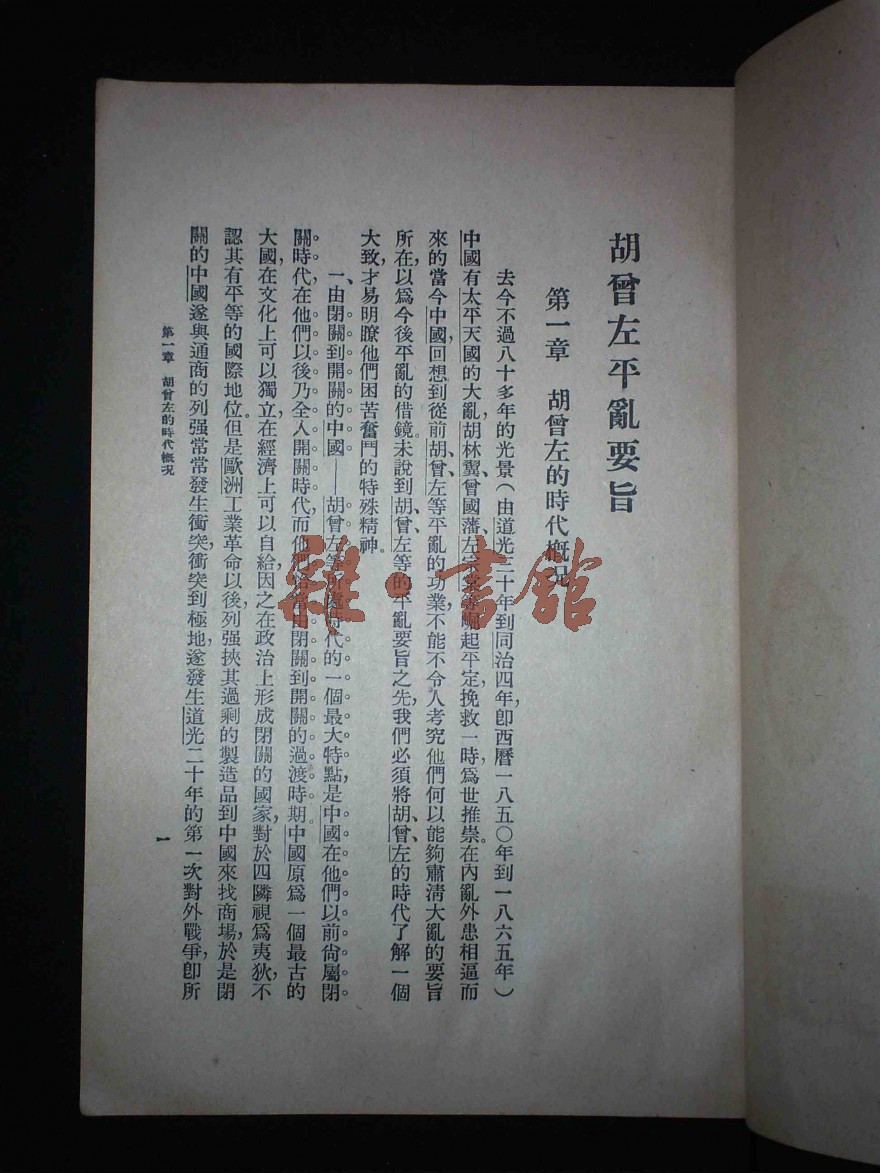 胡曾左平亂要旨
第一章　胡曾左的時代概況
去今不過八十多年的光景（由道光三十年到同治四年，卽西曆一八五〇年到一八六五年）
中國有太平天國的大亂，胡林翼、曾國藩、左宗棠等崛起平定，挽救一時，爲世推崇。在內亂外患相逼而
來的當今中國，回想到從前胡、曾、左等平亂的功業，不能不令人考究他們何以能夠肅淸大亂的要旨
所在，以爲今後平亂的借鏡。未說到胡、曾、左等的平亂要旨之先，我們必須將胡、曾、左的時代了解一個
大致，才易明瞭他們困苦奮鬥的特殊精神。
一、由閉關到開關的中國——胡曾左等所處時代的一個最大特點，是中國在他們以前尙屬閉
關時代，在他們以後乃全入開關時代，而他們恰當由閉關到開關的過渡時期。中國原爲一個最古的
大國，在文化上可以獨立，在經濟上可以自給，因之在政治上形成閉關的國家，對於四隣視爲夷狄，不
認其有平等的國際地位。但是歐洲工業革命以後，列强挾其過剩的製造品到中國來找商場，於是閉
關的中國遂與通商的列强常常發生衝突，衝突到極地，遂發生道光二十年的第一次對外戰爭，卽所
第一章　胡曾左的時代概況
一
雜·書館